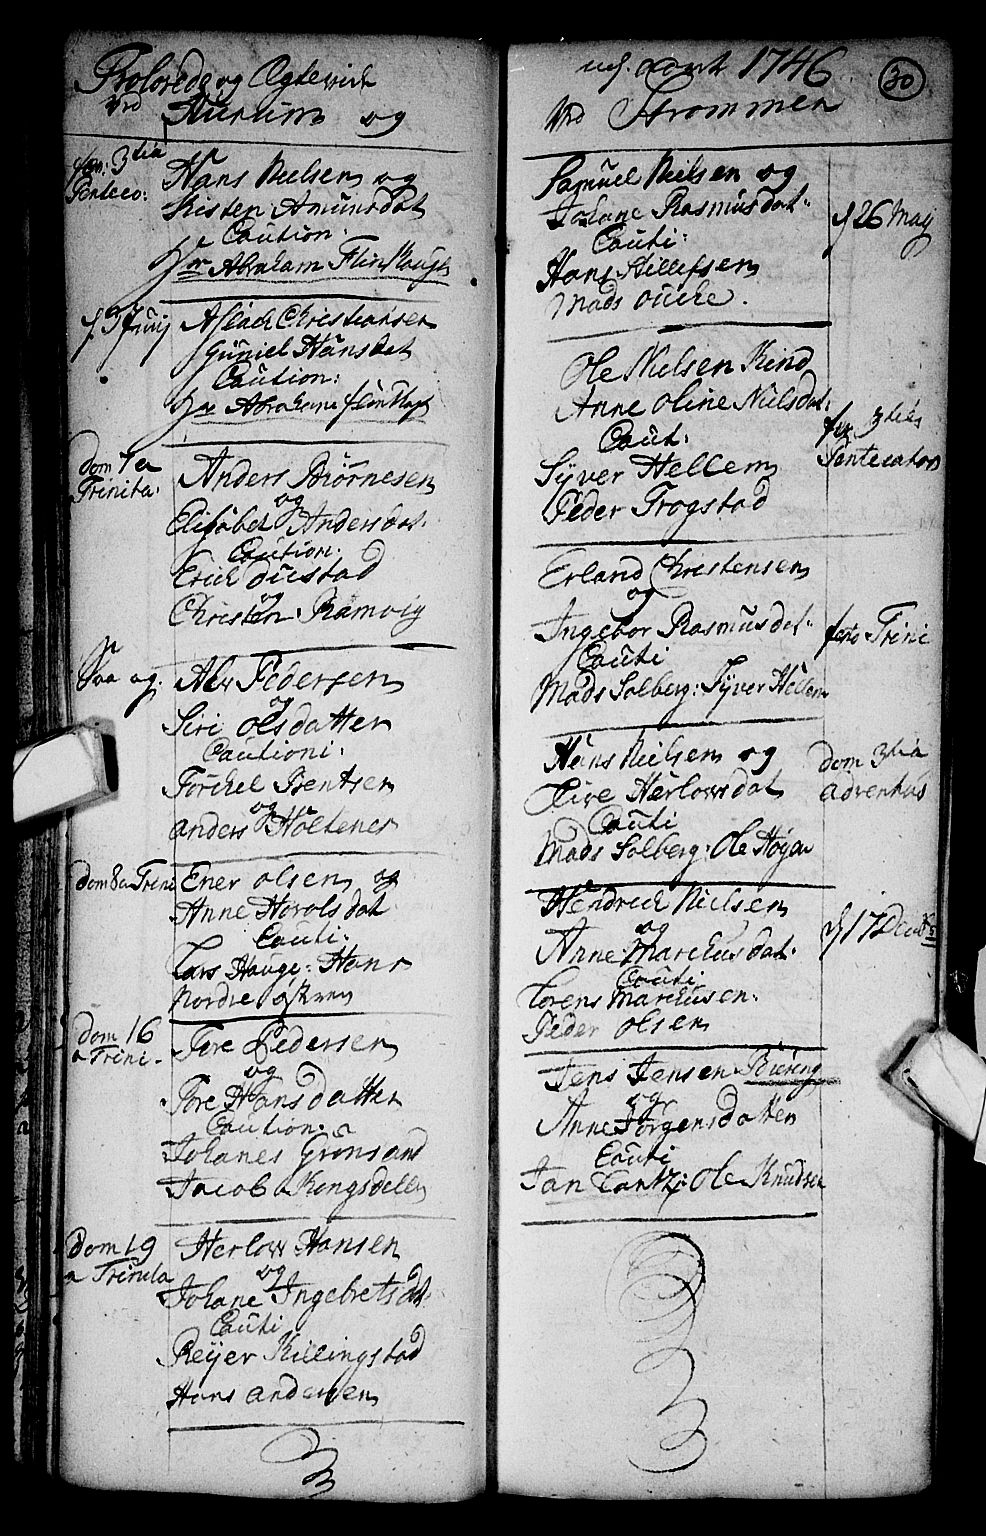 Trolovede og Ægtevide
Ved Hurum og
fer: 3tia
Penteco:
Hans Nielsen og
Kisten Amunsdat
Caution:
Hr Abraham Flinshaugh
d. 3 Junij
Aslach Christiansen
Guniel Hansdat
Caution:
Hr Abraham
dom 1a
Trinita:
Anders Biörnesen
og
Elisabet Andersdat.
Caution:
Erich
og
Christen Ramvig
Alv Pedersen
og
Siri olsdatter
Cautioni:
Torchel Brentsen
og
anders Holtenes
dom 8a Trini
Ener olsen og
Anne Horolsdat
Cauti:
Lars Hauge: Hans
Nordre
dom 16
a Trini.
Tore Pedersen
og
Tore Hansdatter
Caution:
Johanes Grönsand
Jacob Kongsdelle
dom 19
a Trinita
Herlow Hansen
og
Johane Ingebretsdat.
Cauti
Reijer Killingstad
Hans andersen
1746
30
Ved Strömmen
Samuel Nielsen og
Johane Rasmusdat.
Cauti:
Hans Hillefsen
Mads
d 26 Maij
Ole Nielsen Kind
Anne oline Nielsdat:
Caut:
Syver Hellem
Peder Trogstad
fer 3ties
Pentecostes
Erland Christensen
og
Ingebor Rasmusdat.
Cauti
Mads Solberg: Syver Hellem
festo Trini
Hans Nielsen og
Live Herlowsdat
Cauti
Mads Solberg: Ole Höyen
dom 3tia
adventus
Hendrich Nielsen
og
Anne Marchusdat.
Cauti
Lorens Marchusen.
Peder olsen
d 17 Decbr
Jens Jensen Biering
og
Anne Jörgensdatter
Cauti
Jan Lantz: Ole Knudsen